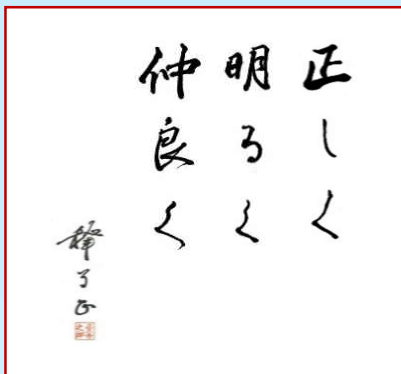 正しく
明るく
仲良く